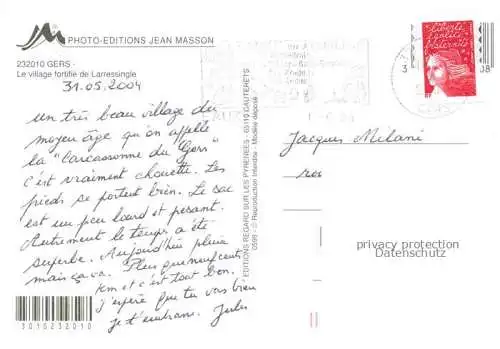 PHOTO-EDITIONS JEAN MASSON
232010 GERS -
Le village fortifié de Larressingle
31.05.2004
un très beau village du
moyen âge qu'on appelle
la "Carcassonne du Gers"
C'est vraiment chouette. Les
pieds se portent bien. Le sac
est un peu lourd et pesant.
Autrement le temps a été
superbe. Aujourd'hui pluie
mais ça va. Plus que neuf cents
km et c'est tout bon.
J'espère que tu vas bien
je t'embrasse. Jules
3010232010
EDITIONS REGARD SUR LES PYRENEES - 65110 CAUTERETS
0599 - © Reproduction Interdite - Modèle déposé
liberté
égalité
fraternité
RF
Jacques Milani
privacy protection
Datenschutz